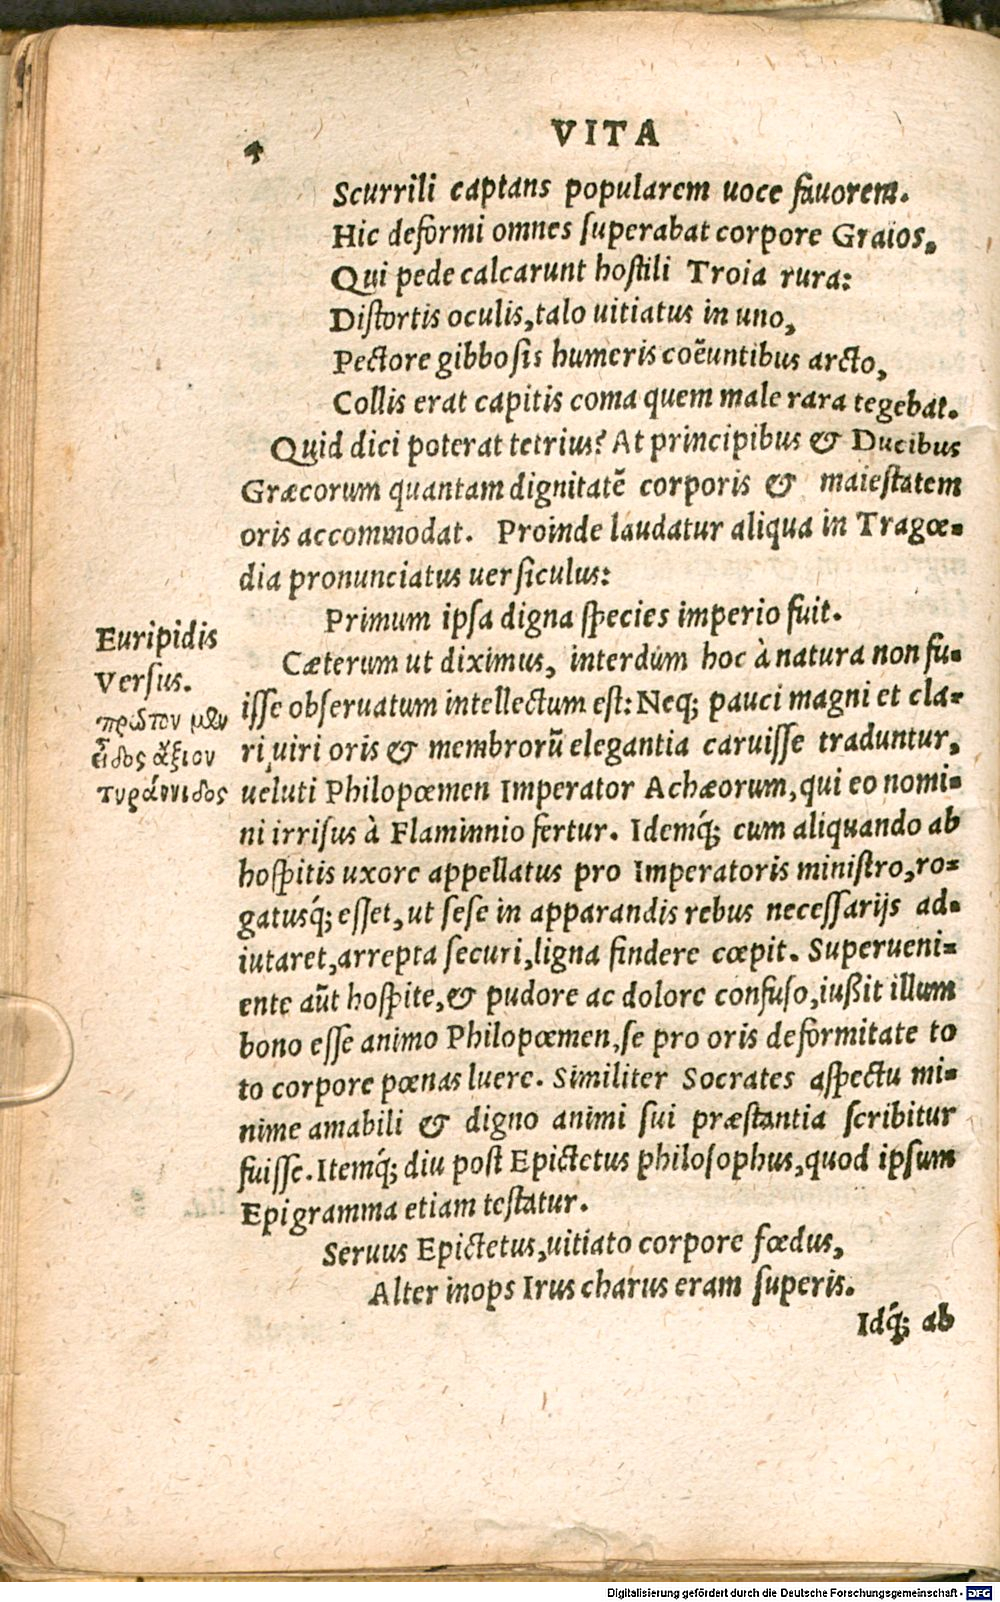 VITA
Scurrili captans popularem uoce fauorem.
Hic deformi omnes superabat corpore Graios,
Qui pede calcarunt hostili Troia rura:
Distortis oculis, talo uitiatus in uno,
Pectore gibbosis humeris coëuntibus arcto,
Collis erat capitis coma quem male rara tegebat.
Quid dici poterat tetrius? At principibus & Ducibus
Græcorum quantam dignitatē corporis & maiestatem
oris accommodat. Proinde laudatur aliqua in Tragœ-
dia pronunciatus uersiculus:
Primum ipsa digna species imperio fuit.
Euripidis
Versus.
πρῶτον μὲν
εἶδος ἄξιον
τυράννιδος
Cæterum ut diximus, interdum hoc à natura non fu-
isse obseruatum intellectum est: Neq; pauci magni et cla-
ri uiri oris & membrorū elegantia caruisse traduntur,
ueluti Philopœmen Imperator Achæorum, qui eo nomi-
ni irrisus à Flaminnio fertur. Idemq́; cum aliquando ab
hospitis uxore appellatus pro Imperatoris ministro, ro-
gatusq́; esset, ut sese in apparandis rebus necessarijs ad-
iutaret, arrepta securi, ligna findere cœpit. Superueni-
ente aūt hospite, & pudore ac dolore confuso, iußit illum
bono esse animo Philopœmen, se pro oris deformitate to
to corpore pœnas luere. Similiter Socrates aspectu mi-
nime amabili & digno animi sui præstantia scribitur
fuisse. Itemq́; diu post Epictetus philosophus, quod ipsum
Epigramma etiam testatur.
Seruus Epictetus, uitiato corpore fœdus,
Alter inops Irus charus eram superis.
Idq́; ab
Digitalisierung gefördert durch die Deutsche Forschungsgemeinschaft - DFG